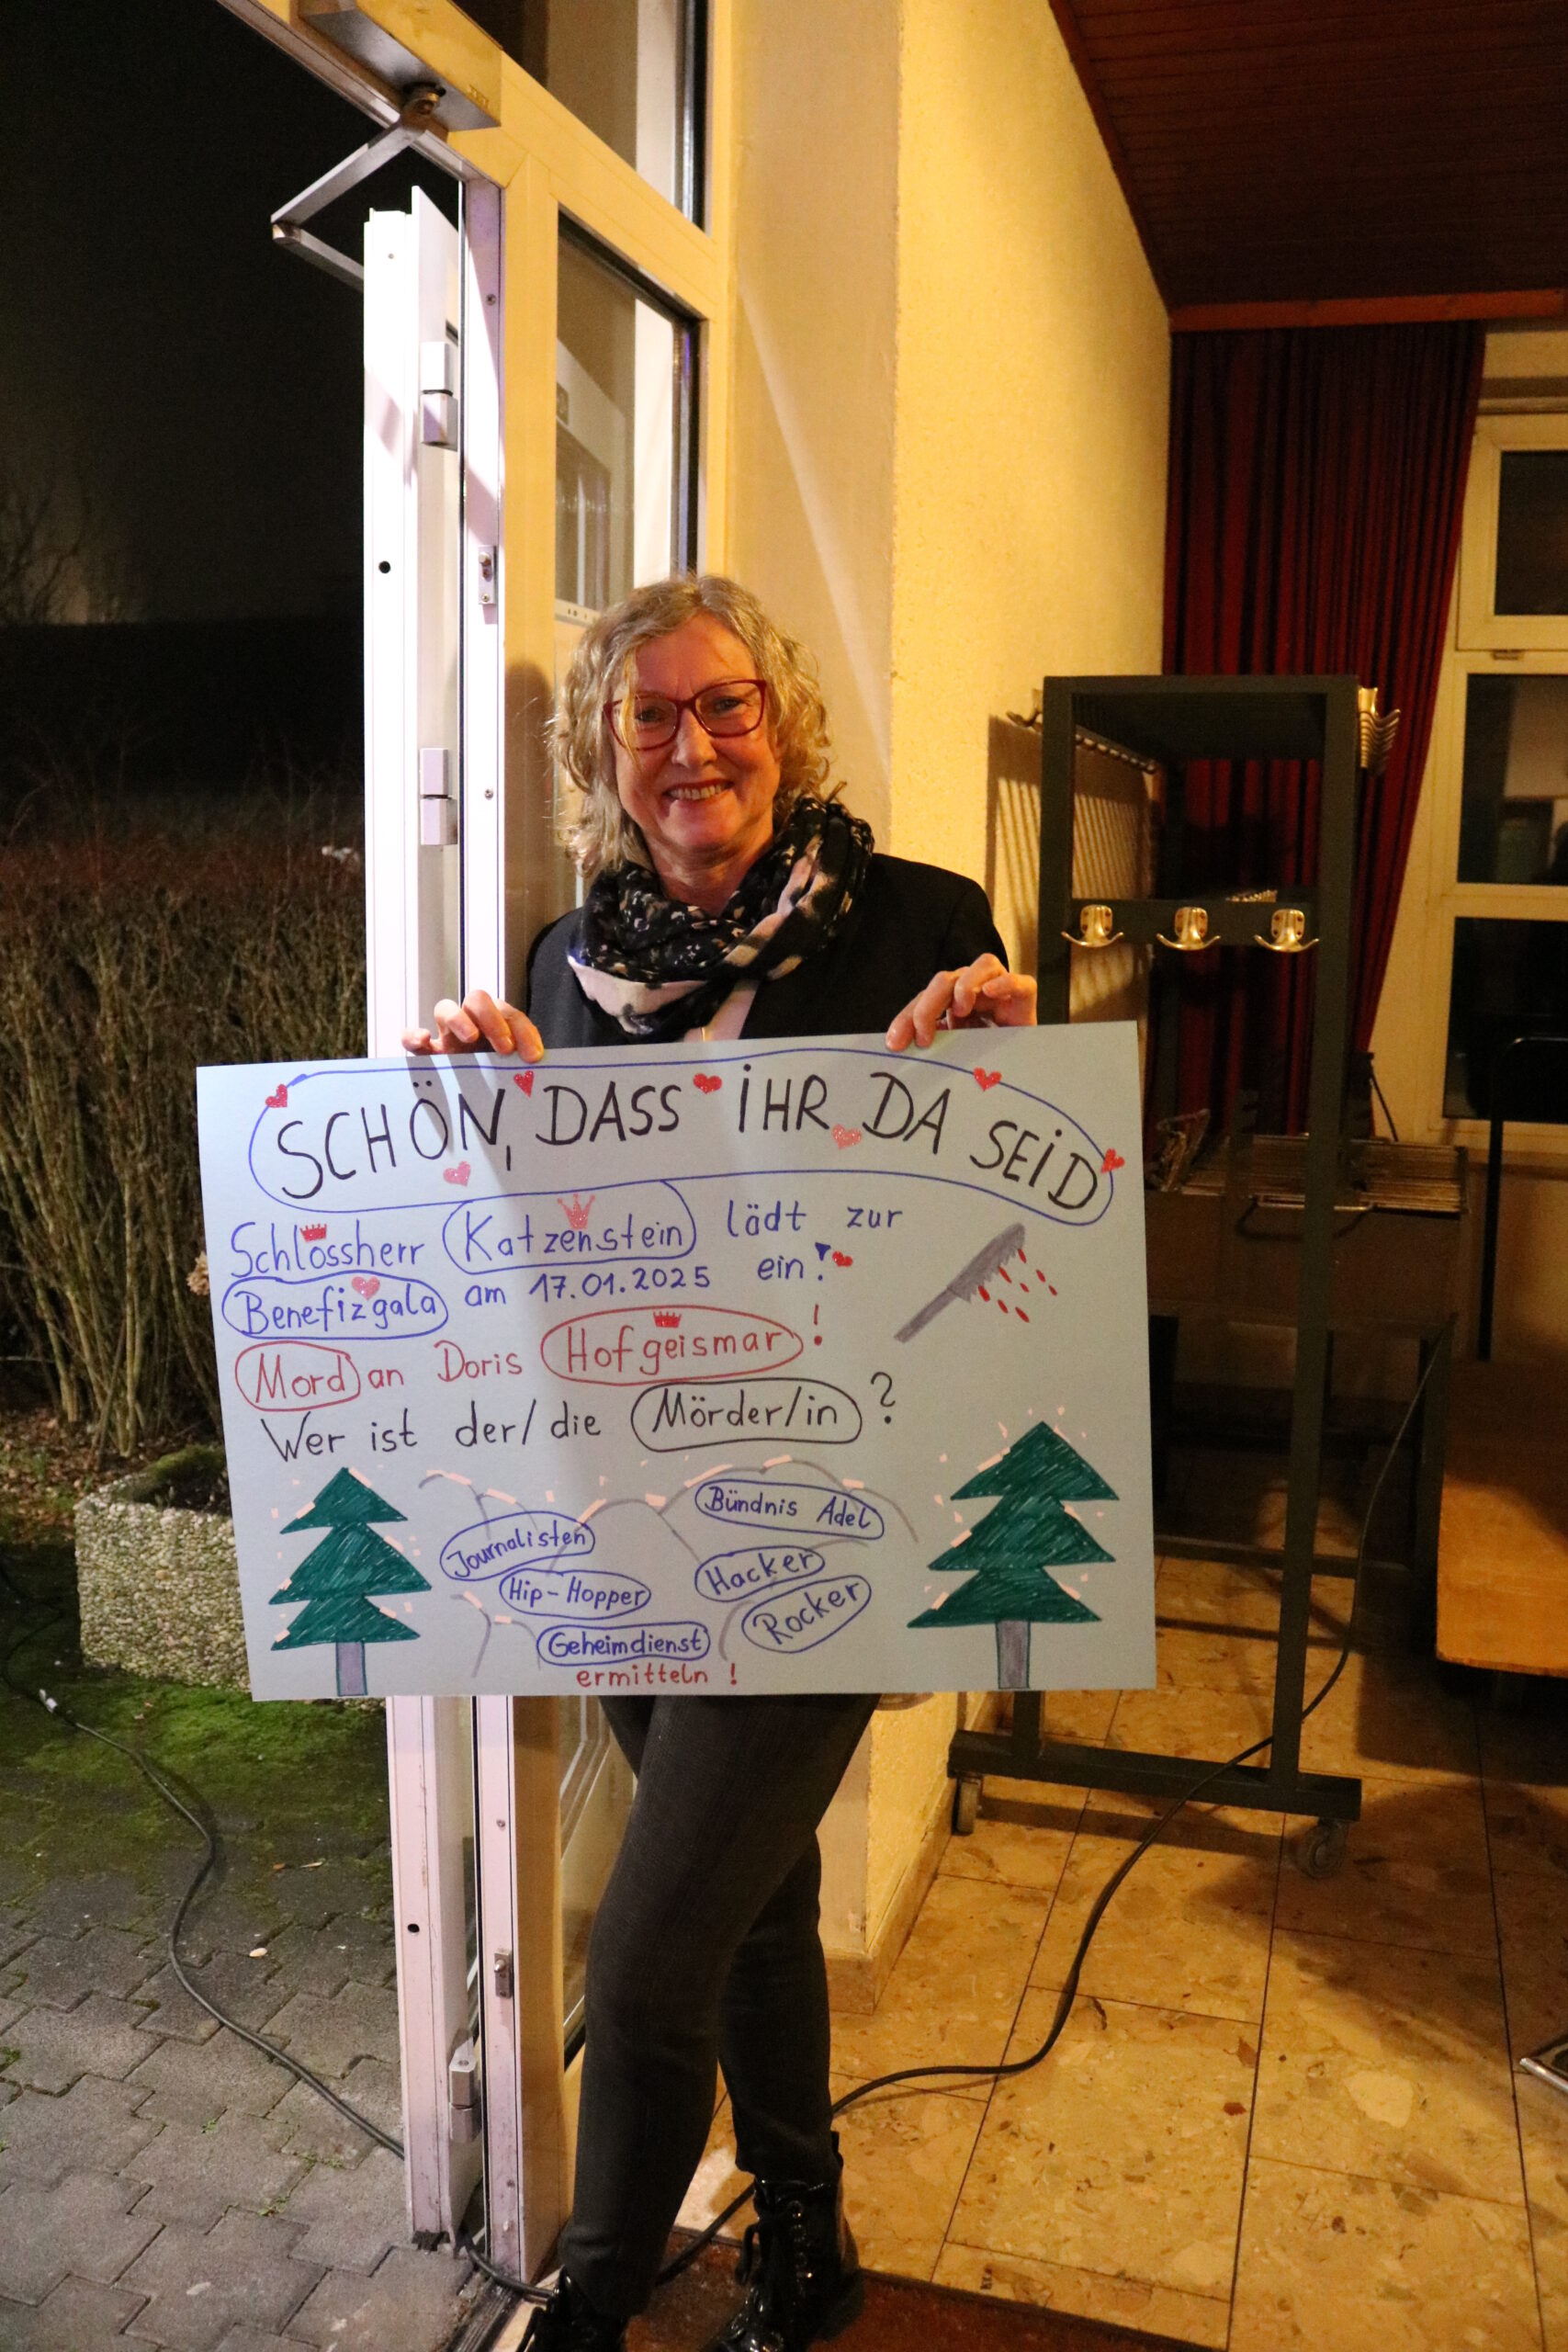 SCHÖN, DASS IHR DA SEID
Schlossherr Katzenstein lädt zur
Benefizgala am 17.01.2025 ein!
Mord an Doris Hofgeismar!
Wer ist der/die Mörder/in?
Bündnis Adel
Journalisten
Hacker
Hip-Hopper
Rocker
Geheimdienst
ermitteln!